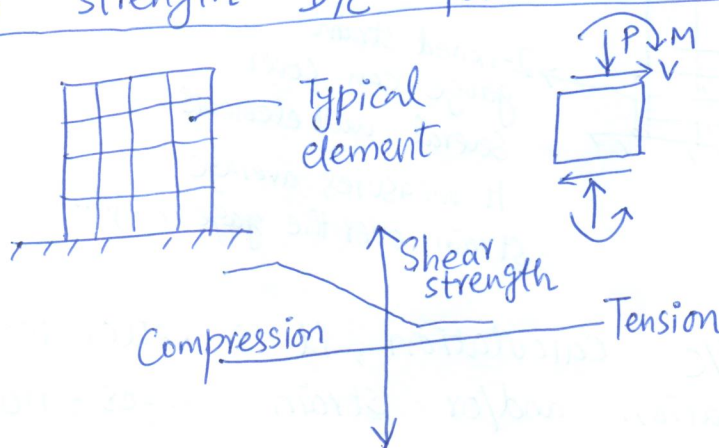 strength D/C
Typical
element
P M
V
Shear
strength
Compression
Tension